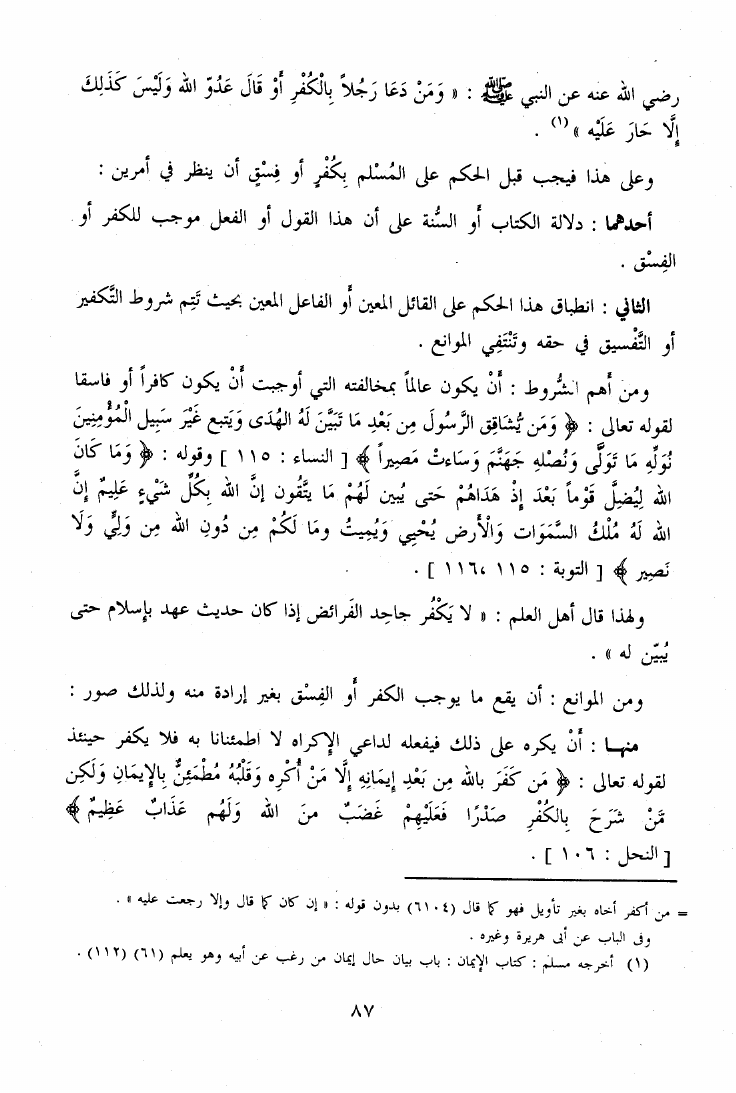 رضي الله عنه عن النبي ﷺ : « وَمَنْ دَعَا رَجُلاً بِالْكُفْرِ أَوْ قَالَ عَدُوّ الله وَلَيْسَ كَذَلِكَ
إِلَّا حَارَ عَلَيْه »(١) .
وعلى هذا فيجب قبل الحكم على المُسْلم بِكُفْرٍ أو فِسْقٍ أن ينظر في أمرين :
أحدهما : دلالة الكتاب أو السُّنة على أن هذا القول أو الفعل موجب للكفر أو
الفِسْق .
الثاني : انطباق هذا الحكم على القائل المعين أو الفاعل المعين بحيث تَتِم شروط التَّكفير
أو التَّفْسيق في حقه وتَنْتَفِي الموانع .
ومن أهم الشُّروط : أَنْ يكون عالماً بمخالفته التي أوجبت أَنْ يكون كافراً أو فاسقا
لقوله تعالى : ﴿ وَمَن يُّشَاقِق الرَّسُولَ مِن بَعْدِ مَا تَبَيَّنَ لَهُ الهُدَى وَيَتبع غَيْرَ سَبِيل الْمُؤْمِنِينَ
نُوَلِّه مَا تَوَلَّى وَنُصْلِهِ جَهَنَّمَ وَسَاءَتْ مَصِيراً ﴾ [ النساء : ١١٥ ] وقوله : ﴿ وَمَا كَانَ
الله لِيُضِلَّ قَوْماً بَعْدَ إِذْ هَدَاهُمْ حَتى يُبين لَهُمْ مَا يَتَّقُون إنَّ الله بِكُلِّ شَيْءٍ عَلِيمٌ إنَّ
الله لَهُ مُلْكُ السَّمَوَات وَالْأَرض يُحْيِي وَيُمِيتُ وما لَكُمْ مِن دُونِ الله مِن وَلِيٍّ وَلَا
نَصِير ﴾ [ التوبة : ١١٥ ،١١٦ ] .
ولهذا قال أهل العلم : « لا يَكْفُر جاحِد الفَرائض إذا كان حديث عهد بإسلام حتى
يُبيّن له » .
ومن الموانع : أن يقع ما يوجب الكفر أو الفِسْق بغير إرادة منه ولذلك صور :
منهـا : أَنْ يكره على ذلك فيفعله لداعي الإكراه لا اطمئنانا به فلا يكفر حينئذ
لقوله تعالى : ﴿ مَن كَفَرَ بالله مِن بَعْدِ إيمَانِهِ إلَّا مَنْ أُكْرِه وَقَلْبُهُ مُطْمَئِنٌّ بِالإيمَانِ وَلَكِن
مَّنْ شَرَحَ بِالكُفْرِ صَدْرًا فَعَلَيْهِمْ غَضَبٌ منَ الله وَلَهُم عَذَابٌ عَظِيمٌ ﴾
[ النحل : ١٠٦ ] .
= من أكفر أخاه بغير تأويل فهو كما قال (٦١٠٤) بدون قوله : « إن كان كما قال وإلا رجعت عليه » .
وفى الباب عن أبى هريرة وغيره .
(١) أخرجه مسلم : كتاب الإيمان : باب بيان حال إيمان من رغب عن أبيه وهو يعلم (٦١) (١١٢) .
٨٧